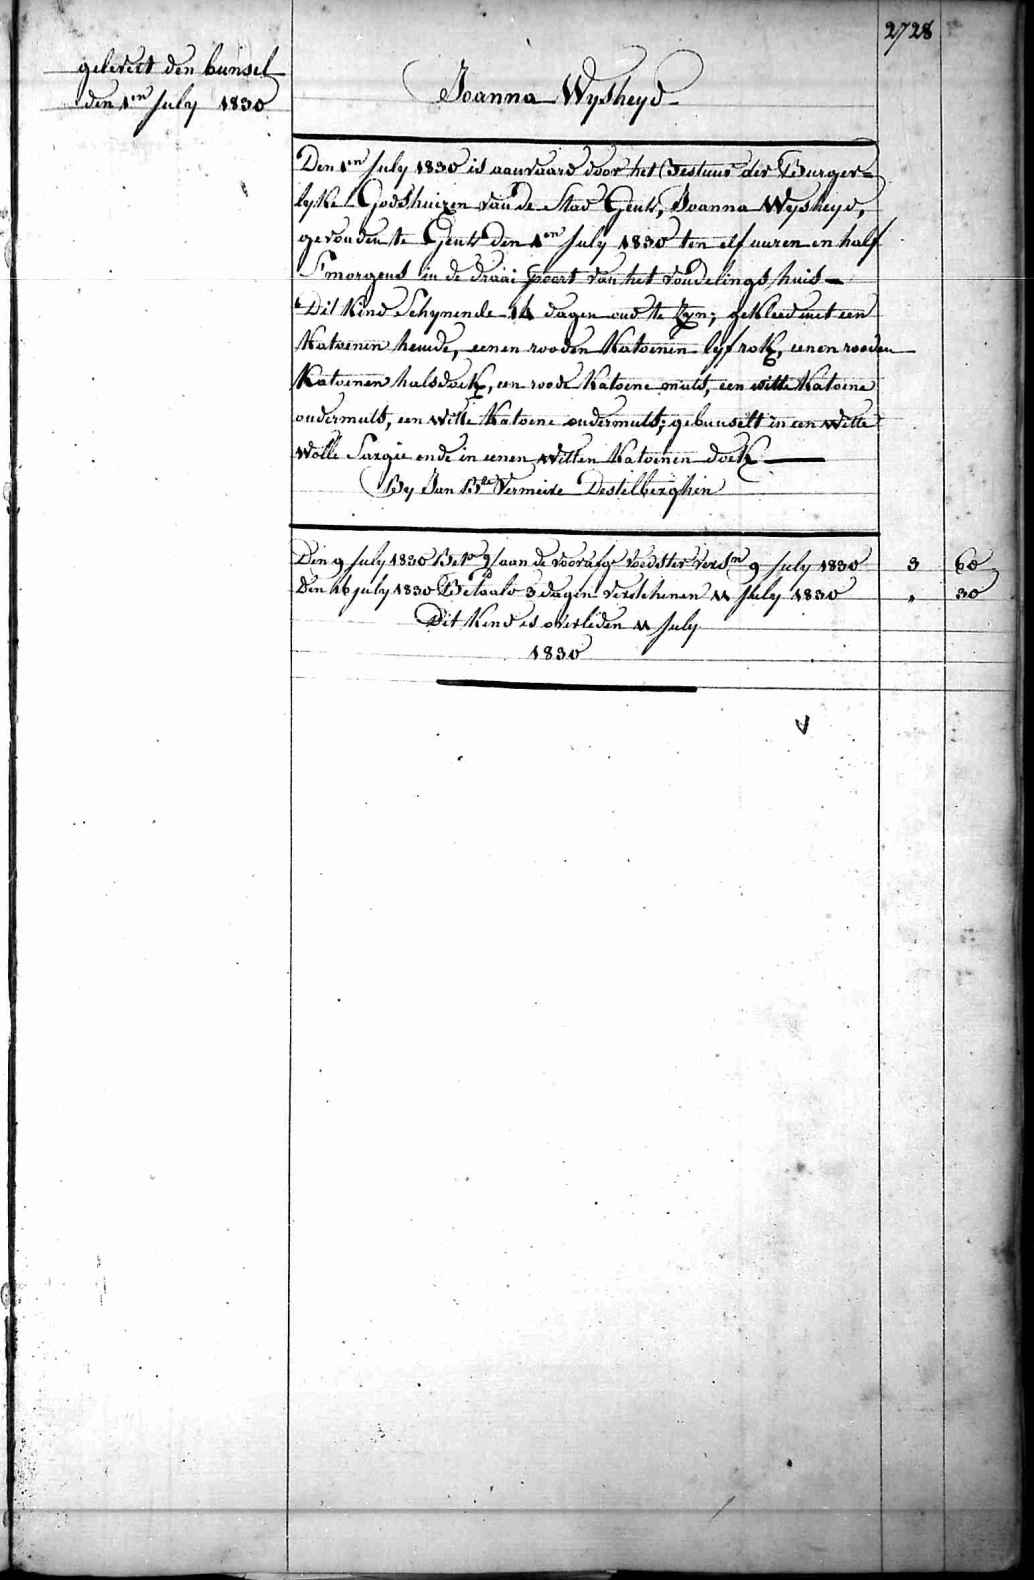 2728
gelevert den bunsel
den 1en July 1830
Joanna Wysheyd
Den 1en July 1830 is aanvaard door het Bestuur der Burger-
lyke Godshuizen van de Stad Gent, Joanna Wysheyd,
gevonden te Gent den 1en July 1830 ten elf uuren en half
S'morgens in de draai poort van het vondelings huis
Dit Kind Schynende 14 dagen oud te Zyn; gekleed met een
Katoenen hemde, eenen rooden Katoenen lyfrok, eenen rooden
Katoenen halsdoek, een roode Katoene muts, een witte Katoene
ondermuts, een witte Katoene ondermuts; gebunselt in een witte
wolle Sargie ende in eenen witten Katoenen doek
By Jan Bte Vermeire Destelberghen
Den 9 July 1830 aan de voorafge voedster 9 July 1830 3 60
Den 16 july 1830 Betaald 3 dagen verschenen 11 July 1830 " 30
Dit Kind is overleden 11 July
1830